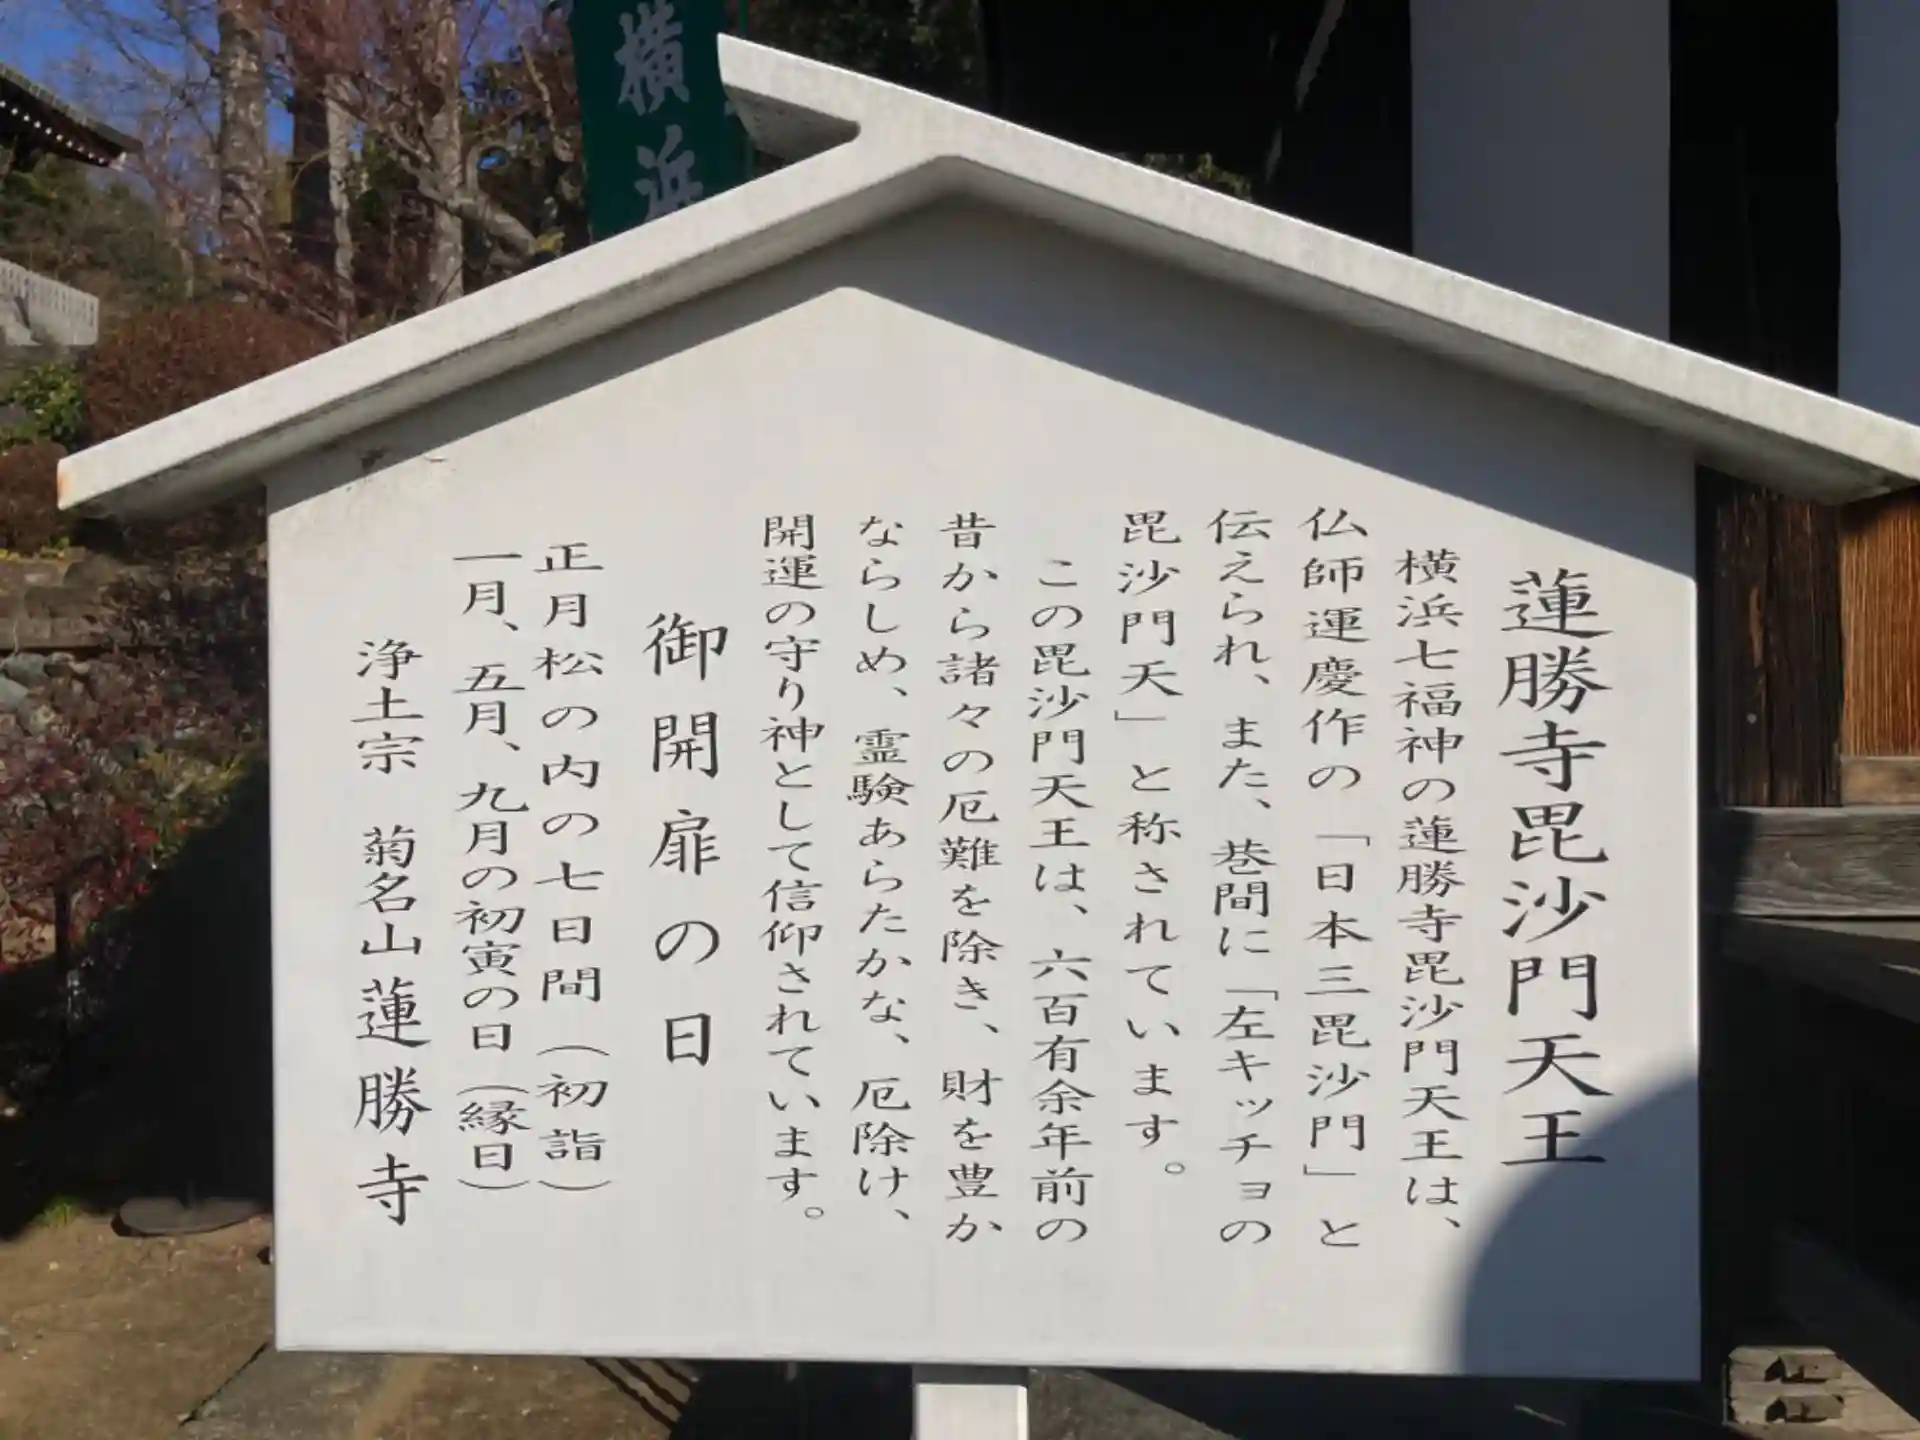 蓮勝寺毘沙門天王
横浜七福神の蓮勝寺毘沙門天王は、
仏師運慶作の「日本三毘沙門」と
伝えられ、また、巷間に「左キッチョの
毘沙門天」と称されています。
この毘沙門天王は、六百有余年前の
昔から諸々の厄難を除き、財を豊か
ならしめ、霊験あらたかな、厄除け、
開運の守り神として信仰されています。
御開扉の日
正月松の内の七日間（初詣）
一月、五月、九月の初寅の日（縁日）
浄土宗 菊名山蓮勝寺
横浜